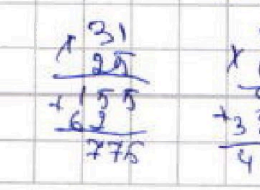 × 31
25
+ 155
62
775
×
+ 3
4